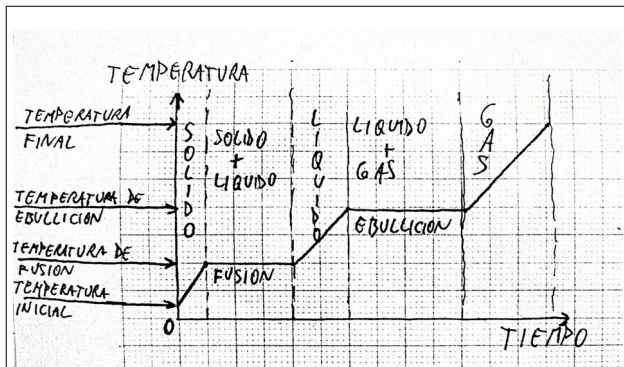 TEMPERATURA
TEMPERATURA
FINAL
TEMPERATURA DE
EBULLICION
TEMPERATURA DE
FUSION
TEMPERATURA
INICIAL
SOLIDO
SOLIDO
+
LIQUIDO
LIQUIDO
LIQUIDO
+
GAS
GAS
FUSION
EBULLICION
0
TIEMPO